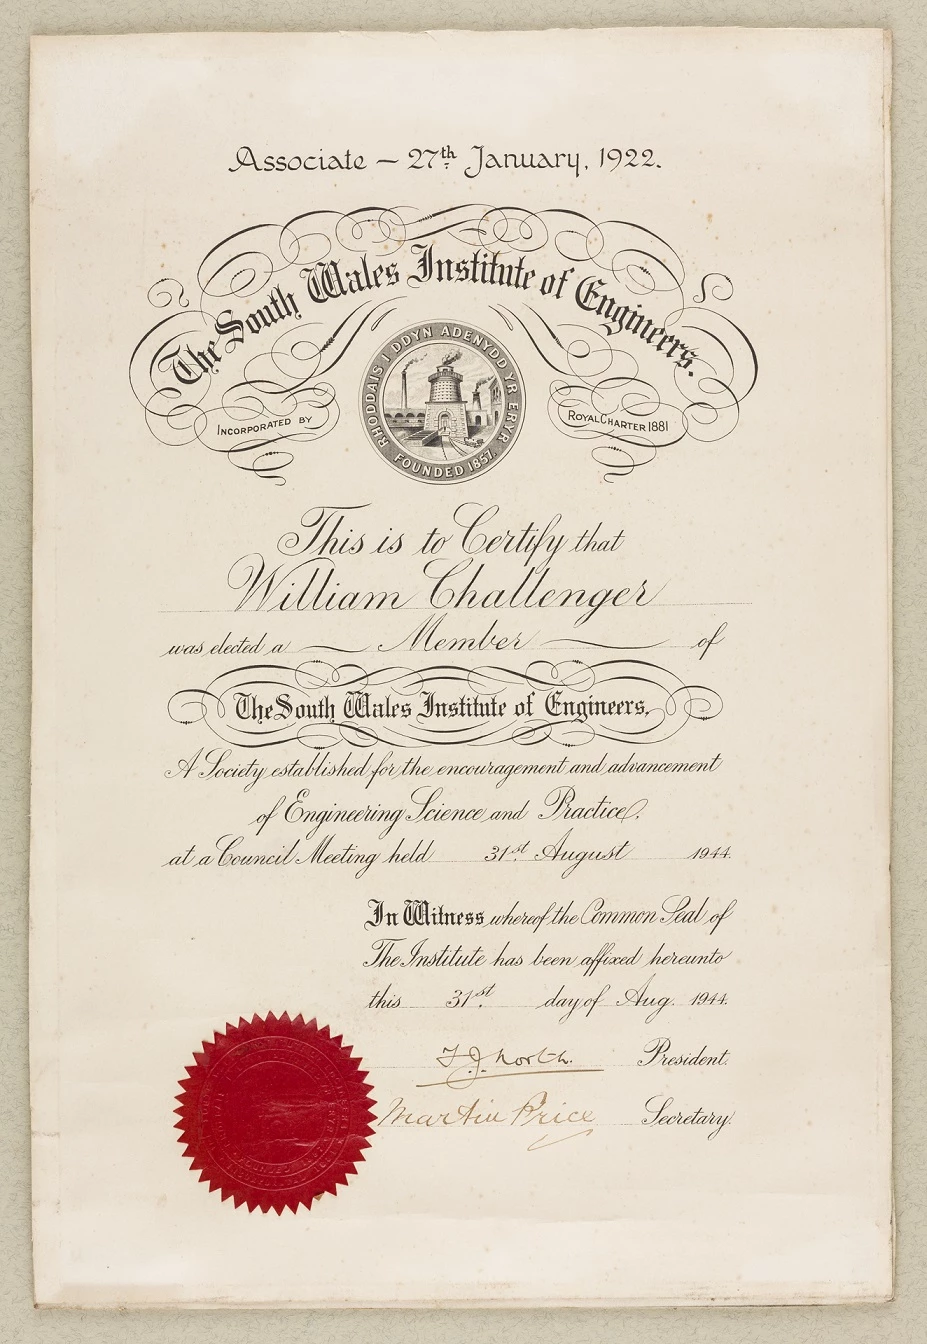 Associate – 27th January, 1922.
The South Wales Institute of Engineers.
INCORPORATED BY
ROYAL CHARTER 1881
RHODDAIS I DDYN ADENYDD YR ERYR
FOUNDED 1857.
This is to Certify that
William Challenger
was elected a Member of
The South Wales Institute of Engineers,
A Society established for the encouragement and advancement
of Engineering Science and Practice,
at a Council Meeting held 31st August 1944.
In Witness whereof the Common Seal of
The Institute has been affixed hereunto
this 31st day of Aug. 1944.
T J. North. President.
Martin Price Secretary.